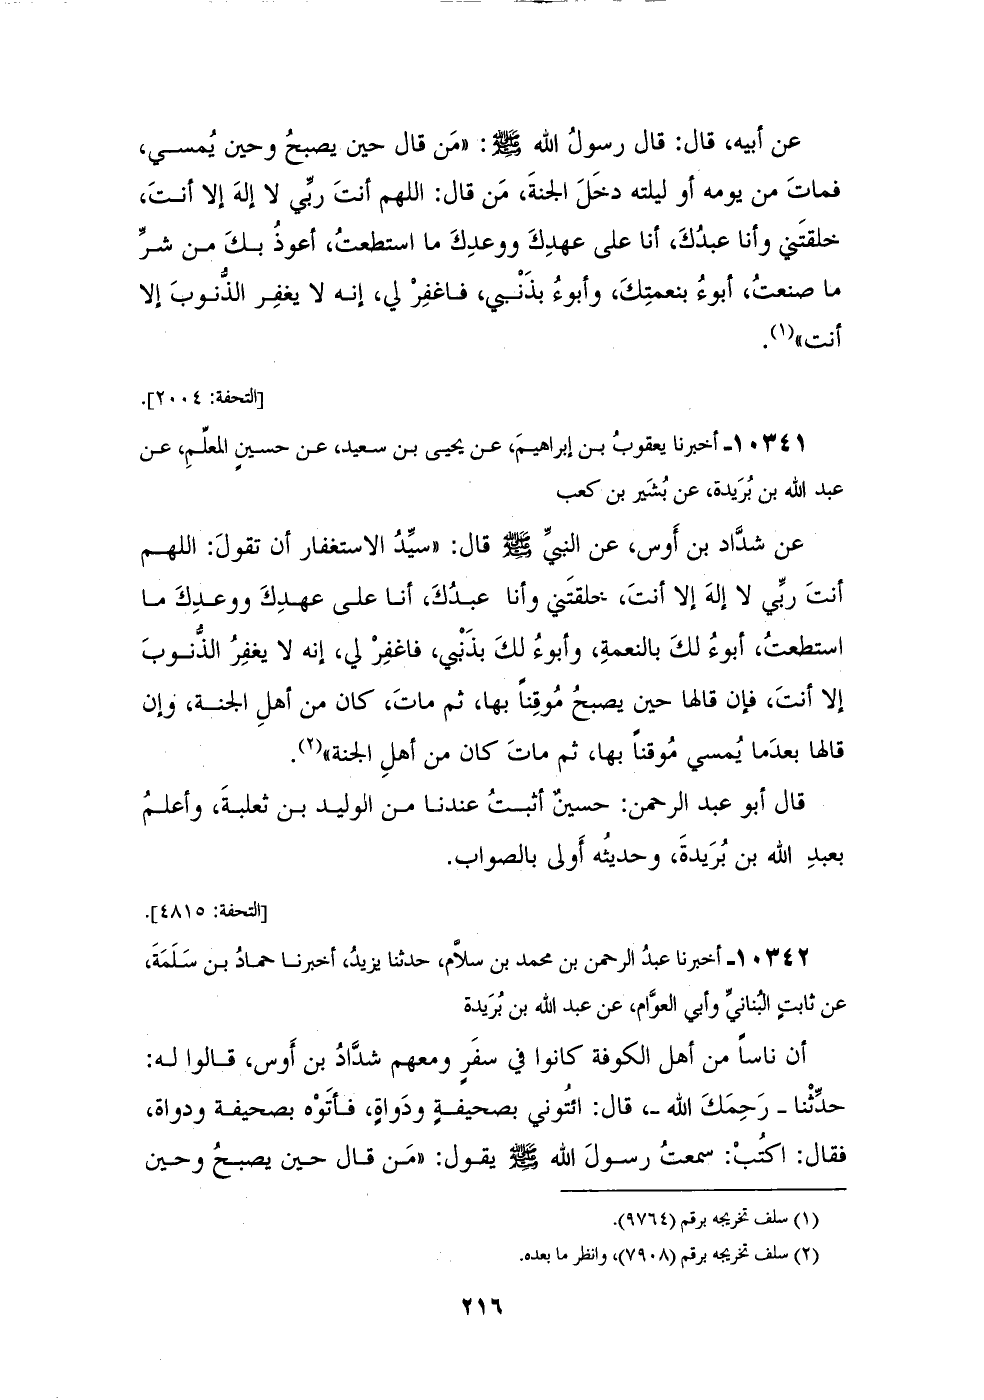 عن أبيه، قال: قال رسولُ الله ﷺ: «مَن قال حين يصبحُ وحين يُمسـي،
فماتَ من يومه أو ليلته دخَلَ الجنةَ، مَن قال: اللهم أنتَ ربِّي لا إلهَ إلا أنـتَ،
خلقتَني وأنا عبدُكَ، أنا على عهدِكَ ووعدِكَ ما استطعتُ، أعوذُ بـكَ مـن شرِّ
ما صنعتُ، أبوءُ بنعمتِكَ، وأبوءُ بذَنْـبي، فـاغفِرْ لي، إنـه لا يغفِـر الذُّنـوبَ إلا
أنت»(١).
[التحفة: ٢٠٠٤].
١٠٣٤١ـ أخبرنا يعقوبُ بـن إبراهيـمَ، عـن يحيـى بـن سـعيد، عـن حسـينٍ المعلِّـمِ، عـن
عبد الله بن بُرَيدة، عن بُشَير بن كعب
عن شدَّاد بن أَوس، عن النبيِّ ﷺ قال: «سيِّدُ الاستغفار أن تقولَ: اللهـم
أنتَ ربِّي لا إلهَ إلا أنتَ، خلقتَني وأنا عبـدُكَ، أنـا علـى عهـدِكَ ووعـدِكَ مـا
استطعتُ، أبوءُ لكَ بالنعمةِ، وأبوءُ لكَ بذَنْبي، فاغفِرْ لي، إنه لا يغفِرُ الذُّنـوبَ
إلا أنتَ، فإن قالها حين يصبحُ مُوقِناً بها، ثم ماتَ، كان من أهلِ الجنـة، وإن
قالها بعدَما يُمسي مُوقناً بها، ثم ماتَ كان من أهلِ الجنة»(٢).
قال أبو عبد الرحمن: حسينٌ أثبـتُ عندنـا مـن الوليـد بـن ثعلبـةَ، وأعلـمُ
بعبدِ الله بن بُرَيدةَ، وحديثُه أَولى بالصواب.
[التحفة: ٤٨١٥].
١٠٣٤٢ـ أخبرنا عبدُ الرحمن بن محمد بن سلاَّم، حدثنا يزيدُ، أخبرنـا حمـادُ بـن سَـلَمَةَ،
عن ثابتٍ البُنانيِّ وأبي العوَّام، عن عبد الله بن بُرَيدة
أن ناساً من أهل الكوفة كانوا في سفَرٍ ومعهم شدَّادُ بن أَوس، قـالوا لـه:
حدِّثْنا ـ رَحِمَكَ الله ـ، قال: ائتُوني بصحيفـةٍ ودَواةٍ، فـأتَوْه بصحيفـة ودواة،
فقال: اكتُبْ: سمعتُ رسـولَ الله ﷺ يقول: «مَـن قـال حـين يصبـحُ وحـين
(١) سلف تخريجه برقم (٩٧٦٤).
(٢) سلف تخريجه برقم (٧٩٠٨)، وانظر ما بعده.
٢١٦